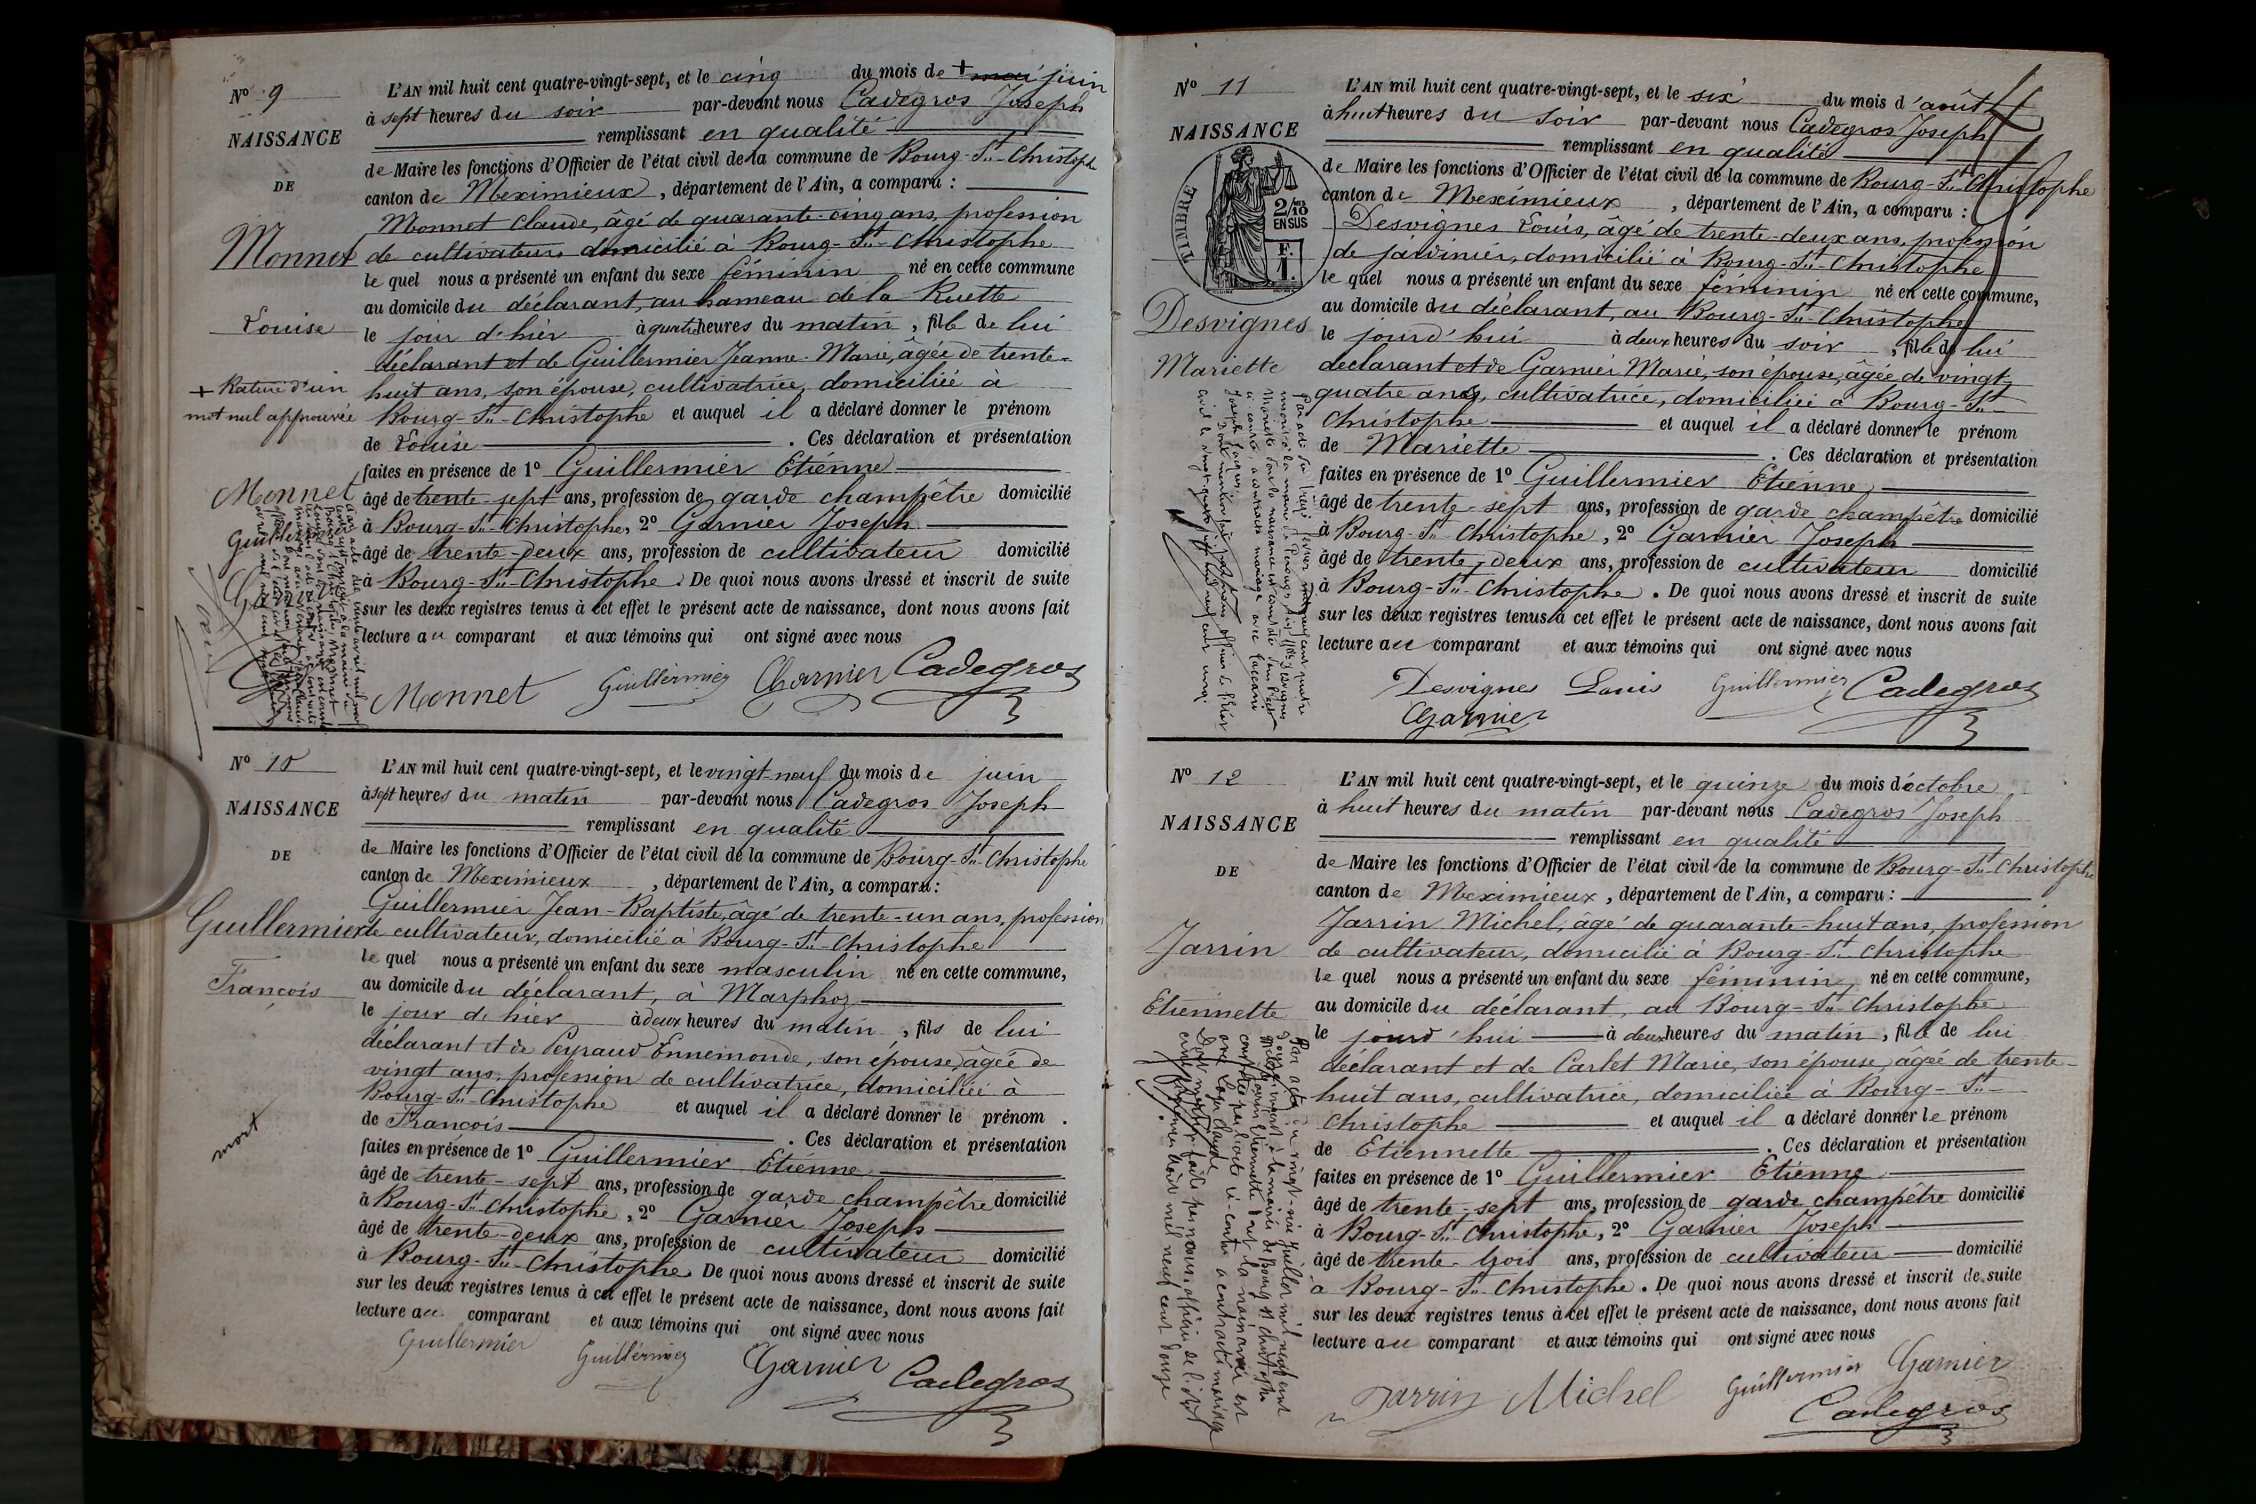 Nº 9
NAISSANCE
DE
Monnet
Louise
+ Rature d'un
mot nul approuvée
L'AN mil huit cent quatre-vingt-sept, et le cinq du mois de + mai juin
à sept heures du soir par-devant nous Cadegros Joseph
remplissant en qualité
de Maire les fonctions d'Officier de l'état civil de la commune de Bourg-St-Christophe
canton de Meximieux, département de l'Ain, a comparu :
Monnet Claude, âgé de quarante-cinq ans, profession
de cultivateur, domicilié à Bourg-St-Christophe
le quel nous a présenté un enfant du sexe féminin né en cette commune
au domicile du déclarant, au hameau de la Ruette
le jour d'hier à quatre heures du matin, fille de lui
déclarant et de Guillermier Jeanne-Marie, âgée de trente-
huit ans, son épouse, cultivatrice, domiciliée à
Bourg-St-Christophe et auquel il a déclaré donner le prénom
de Louise. Ces déclaration et présentation
faites en présence de 1º Guillermier Etienne
âgé de trente-sept ans, profession de garde champêtre domicilié
à Bourg-St-Christophe, 2º Garnier Joseph
âgé de trente-deux ans, profession de cultivateur domicilié
à Bourg-St-Christophe. De quoi nous avons dressé et inscrit de suite
sur les deux registres tenus à cet effet le présent acte de naissance, dont nous avons fait
lecture au comparant et aux témoins qui ont signé avec nous
Monnet Guillermier Garnier Cadegros
Monnet
Nº 10
NAISSANCE
DE
Guillermier
François
mort
L'AN mil huit cent quatre-vingt-sept, et le vingt-neuf du mois de juin
à sept heures du matin par-devant nous Cadegros Joseph
remplissant en qualité
de Maire les fonctions d'Officier de l'état civil de la commune de Bourg-St-Christophe
canton de Meximieux, département de l'Ain, a comparu :
Guillermier Jean-Baptiste, âgé de trente-un ans, profession
de cultivateur, domicilié à Bourg-St-Christophe
le quel nous a présenté un enfant du sexe masculin né en cette commune,
au domicile du déclarant, à Marphoz
le jour d'hier à deux heures du matin, fils de lui
déclarant et de Peyraud Ennemonde, son épouse, âgée de
vingt ans, profession de cultivatrice, domiciliée à
Bourg-St-Christophe et auquel il a déclaré donner le prénom
de François. Ces déclaration et présentation
faites en présence de 1º Guillermier Etienne
âgé de trente-sept ans, profession de garde champêtre domicilié
à Bourg-St-Christophe, 2º Garnier Joseph
âgé de trente-deux ans, profession de cultivateur domicilié
à Bourg-St-Christophe. De quoi nous avons dressé et inscrit de suite
sur les deux registres tenus à cet effet le présent acte de naissance, dont nous avons fait
lecture au comparant et aux témoins qui ont signé avec nous
Guillermier Guillermier Garnier Cadegros
Nº 11
NAISSANCE
TIMBRE
2/10
EN SUS
F.
1.
Desvignes
Mariette
L'AN mil huit cent quatre-vingt-sept, et le six du mois d'août
à huit heures du soir par-devant nous Cadegros Joseph
remplissant en qualité
de Maire les fonctions d'Officier de l'état civil de la commune de Bourg-St-Christophe
canton de Meximieux, département de l'Ain, a comparu :
Desvignes Louis, âgé de trente-deux ans, profession
de jardinier, domicilié à Bourg-St-Christophe
le quel nous a présenté un enfant du sexe féminin né en cette commune,
au domicile du déclarant, au Bourg-St-Christophe
le jourd'hui à deux heures du soir, fille de lui
déclarant et de Garnier Marie, son épouse, âgée de vingt-
quatre ans, cultivatrice, domiciliée à Bourg-St-
Christophe et auquel il a déclaré donner le prénom
de Mariette. Ces déclaration et présentation
faites en présence de 1º Guillermier Etienne
âgé de trente-sept ans, profession de garde champêtre domicilié
à Bourg-St-Christophe, 2º Garnier Joseph
âgé de trente-deux ans, profession de cultivateur domicilié
à Bourg-St-Christophe. De quoi nous avons dressé et inscrit de suite
sur les deux registres tenus à cet effet le présent acte de naissance, dont nous avons fait
lecture au comparant et aux témoins qui ont signé avec nous
Desvignes Louis Guillermier Cadegros
Garnier
Nº 12
NAISSANCE
DE
Jarrin
Etiennette
Par acte du vingt-six Juillet mil neuf cent
douze, inscrit à la mairie de Bourg St Christophe
Jarrin Etiennette dont la naissance est
constatée par l'acte ci-contre a contracté mariage
avec
Dont mention faite par nous, officier de l'état
civil mil neuf cent douze
L'AN mil huit cent quatre-vingt-sept, et le quinze du mois d'octobre
à huit heures du matin par-devant nous Cadegros Joseph
remplissant en qualité
de Maire les fonctions d'Officier de l'état civil de la commune de Bourg-St-Christophe
canton de Meximieux, département de l'Ain, a comparu :
Jarrin Michel, âgé de quarante-huit ans, profession
de cultivateur, domicilié à Bourg-St-Christophe
le quel nous a présenté un enfant du sexe féminin, né en cette commune,
au domicile du déclarant, au Bourg-St-Christophe
le jourd'hui à deux heures du matin, fille de lui
déclarant et de Carlet Marie, son épouse, âgée de trente-
huit ans, cultivatrice, domiciliée à Bourg-St-
Christophe et auquel il a déclaré donner le prénom
de Etiennette. Ces déclaration et présentation
faites en présence de 1º Guillermier Etienne
âgé de trente-sept ans, profession de garde champêtre domicilié
à Bourg-St-Christophe, 2º Garnier Joseph
âgé de trente-trois ans, profession de cultivateur domicilié
à Bourg-St-Christophe. De quoi nous avons dressé et inscrit de suite
sur les deux registres tenus à cet effet le présent acte de naissance, dont nous avons fait
lecture au comparant et aux témoins qui ont signé avec nous
Jarrin Michel Guillermier Garnier
Cadegros